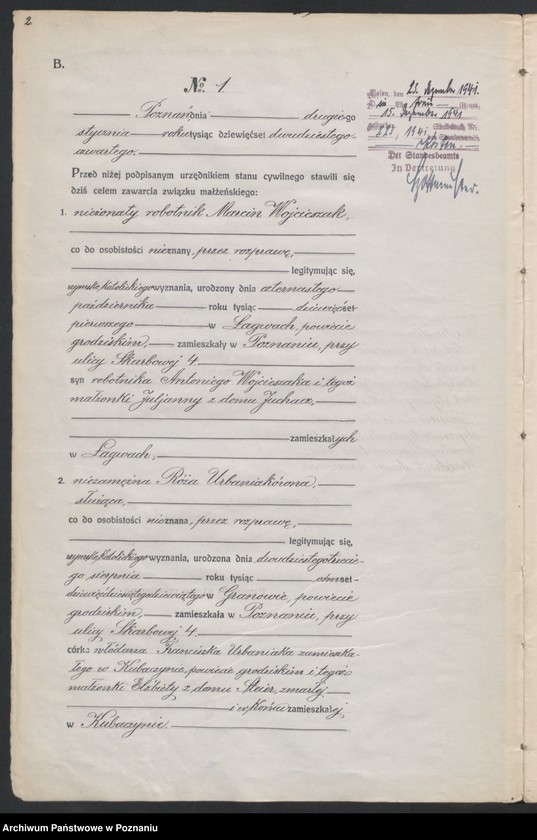 2
B.
No. 1
Poznań dnia drugiego
stycznia roku tysiąc dziewięćset dwudziestego
czwartego.
Przed niżej podpisanym urzędnikiem stanu cywilnego stawili się
dziś celem zawarcia związku małżeńskiego:
1. nieżonaty robotnik Marcin Wojcieszak,
co do osobistości nieznany, przez rozprawę,
legitymując się,
rzymsko katolickiego wyznania, urodzony dnia czternastego
października roku tysiąc dziewięćset
pierwszego w Łagwach, powiecie
grodziskim, zamieszkały w Poznaniu, przy
ulicy Skarbowej 4.
syn robotnika Antoniego Wojcieszaka i tegoż
małżonki Juljanny z domu Juchacz,
zamieszkałych
w Łagwach,
2. niezamężna Róża Urbaniakówna,
służąca,
co do osobistości nieznana, przez rozprawę,
legitymując się,
rzymsko katolickiego wyznania, urodzona dnia dwudziestego trzecie-
go sierpnia roku tysiąc ośmset
dziewięćdziesiątego dziewiątego w Granowie, powiecie
grodziskim, zamieszkała w Poznaniu, przy
ulicy Skarbowej 4.
córka włódarza Franciszka Urbaniaka zamieszka-
łego w Kubaczynie, powiecie grodziskim i tegoż
małżonki Elżbiety z domu Steier, zmarłej
i w Końcu zamieszkałej
w Kubaczynie.
Posen, den 23. Dezember 1941.
15. Dezember 1941
Kosten.
Der Standesbeamte
In Vertretung
Archiwum Państwowe w Poznaniu